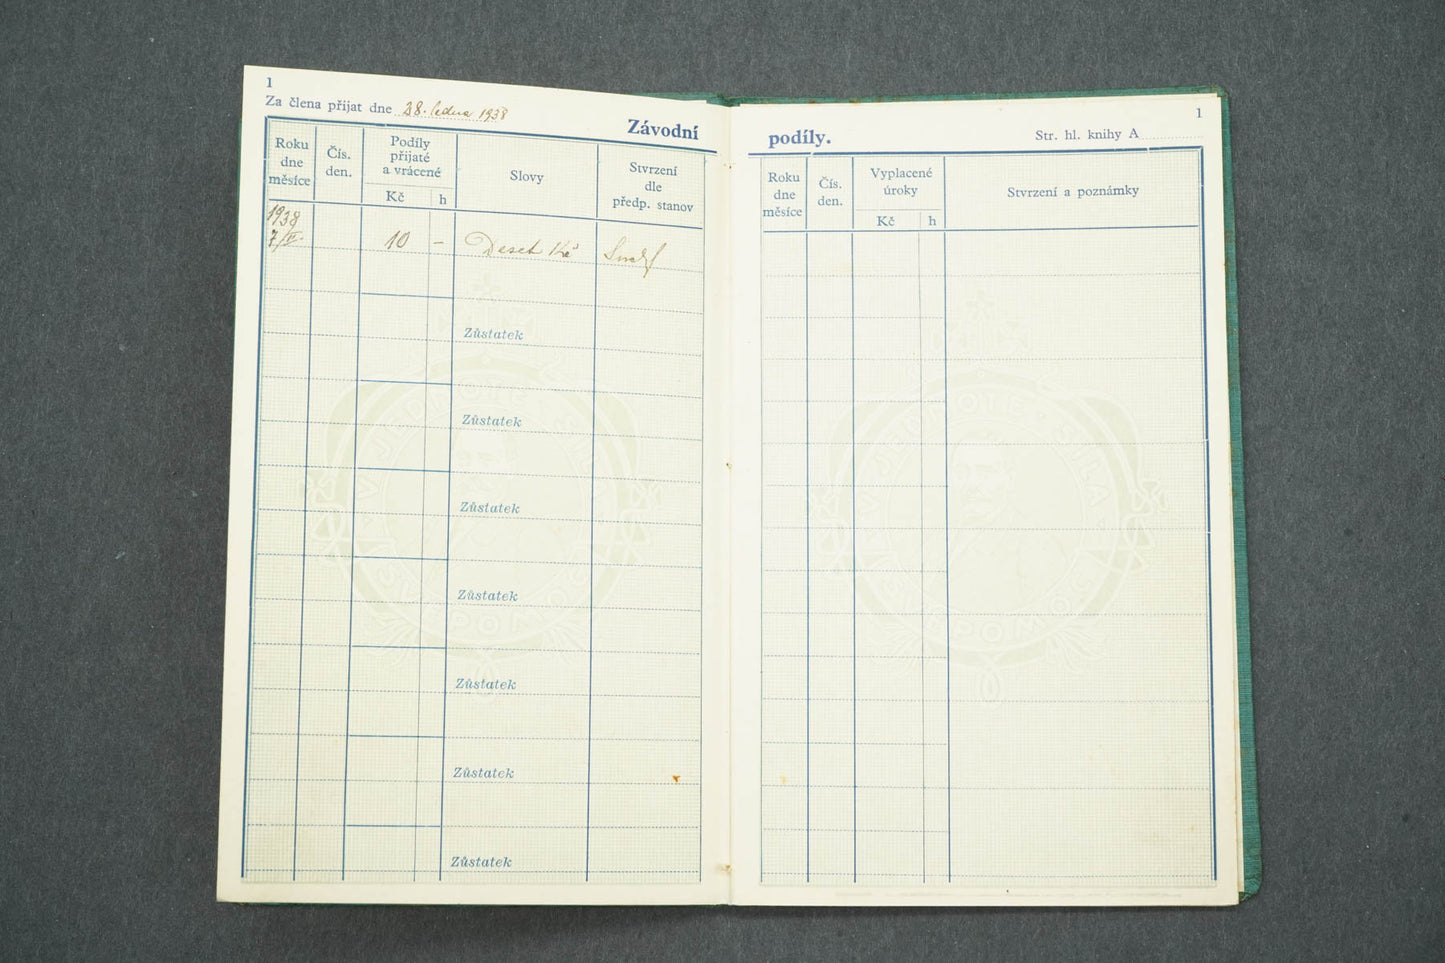 1
Za člena přijat dne 28. ledna 1938
Závodní
Roku dne měsíce
Čís. den.
Podíly přijaté a vrácené
Kč
h
Slovy
Stvrzení dle předp. stanov
1938
7/II.
10
–
Deset Kč
Zůstatek
Zůstatek
Zůstatek
Zůstatek
Zůstatek
Zůstatek
Zůstatek
V JEDNOTĚ SÍLA
SVÉPOMOC
1
podíly.
Str. hl. knihy A
Roku dne měsíce
Čís. den.
Vyplacené úroky
Kč
h
Stvrzení a poznámky
V JEDNOTĚ SÍLA
SVÉPOMOC